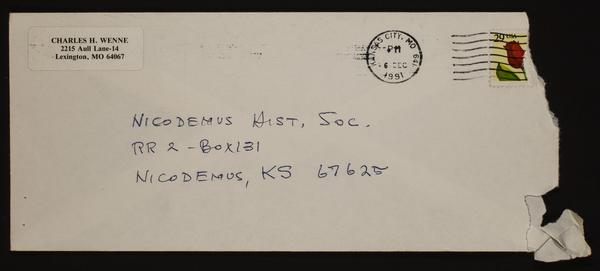 CHARLES H. WENNE
2215 Aull Lane-14
Lexington, MO 64067
KANSAS CITY, MO
PM
6 DEC
1991
29 USA
NICODEMUS HIST, SOC.
RR 2 - BOX 131
NICODEMUS, KS 67625